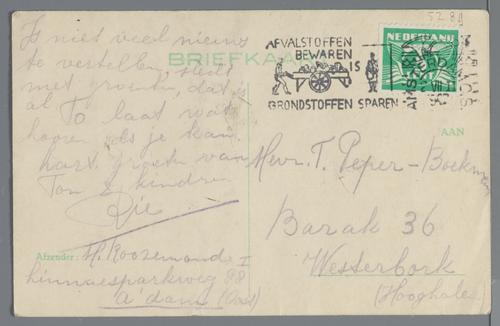 52 8d
Is niet veel nieuws
te vertellen, steeds
met groeten, dat
al To laat wat
hooren als je kan.
hart. groeten van
Ton & kinderen
Rie
Afzender: H. Roozemond I
Linnaeusparkweg 88
A'dam (Oost)
BRIEFKAART
AFVALSTOFFEN
BEWAREN
IS
GRONDSTOFFEN SPAREN
NEDERLAND
AAN
Mevr. T. Peper-Boekman
Barak 36
Westerbork
(Hooghalen)